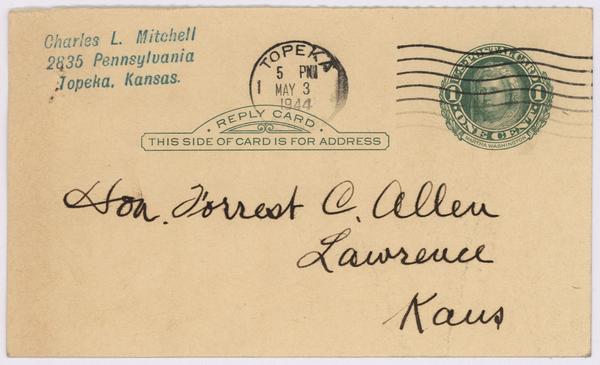 Charles L. Mitchell
2835 Pennsylvania
Topeka, Kansas.
TOPEKA
5 PM
1 MAY 3
1944
REPLY CARD
THIS SIDE OF CARD IS FOR ADDRESS
1 1
ONE CENT
MARTHA WASHINGTON
Hon. Forrest C. Allen
Lawrence
Kans